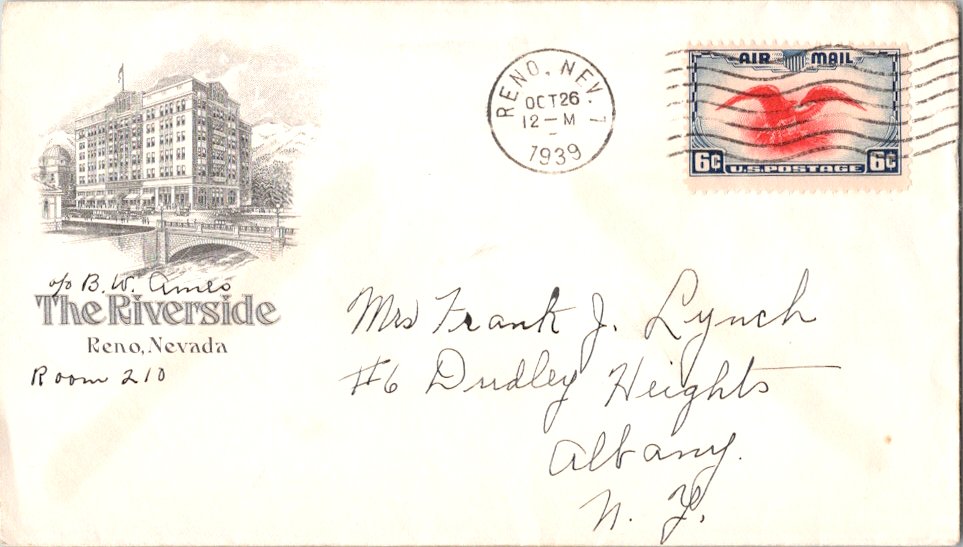 c/o B.W. Ames
The Riverside
Reno, Nevada
Room 210
RENO, NEV. 1
OCT 26
12-M
1939
AIR MAIL
6¢ U.S. POSTAGE 6¢
Mrs Frank J. Lynch
#6 Dudley Heights
Albany.
N. Y.